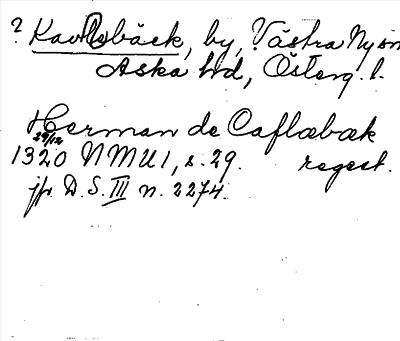 ? Kavlebäck, by, Västra Ny sn
Aska hd, Österg. l.
Herman de Caflæbæk
29/12
1320 NMU1, s. 29. regest.
jfr D.S. III n. 2274.